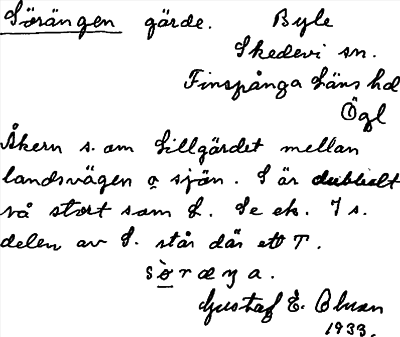 Sörängen gärde. Byle
Skedevi sn.
Finspånga Läns hd
Ögl
Åkern s. om Lillgärdet mellan
landsvägen o sjön. S är dubbelt
så stort som L. Se ek. I s.
delen av S. står där ett T.
Gustaf E. Olsson
1933.